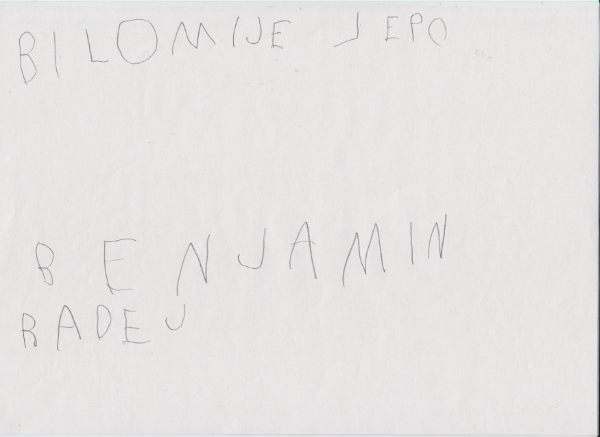 BILOMIJE JEPO
BENJAMIN
RADEJ